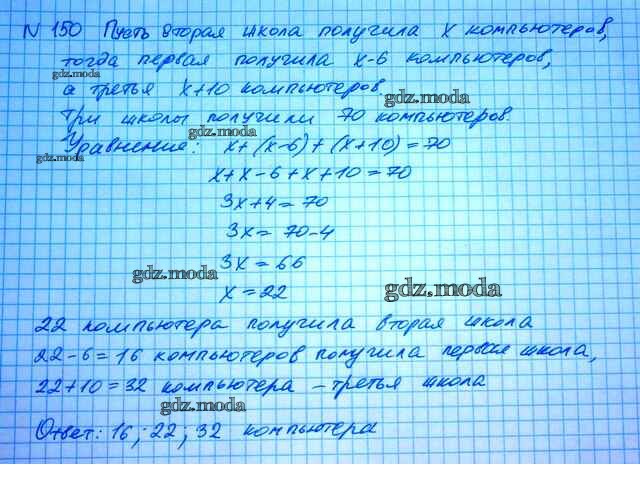 N 150 Пусть вторая школа получила x компьютеров,
тогда первая получила x-6 компьютеров,
gdz.moda
а третья x+10 компьютеров.
gdz.moda
Три школы получили 70 компьютеров.
gdz.moda
Уравнение: x+(x-6)+(x+10)=70
gdz.moda
x+x-6+x+10=70
3x+4=70
3x=70-4
3x=66
gdz.moda
x=22
gdz.moda
22 компьютера получила вторая школа
22-6=16 компьютеров получила первая школа,
22+10=32 компьютера – третья школа
gdz.moda
Ответ: 16; 22; 32 компьютера